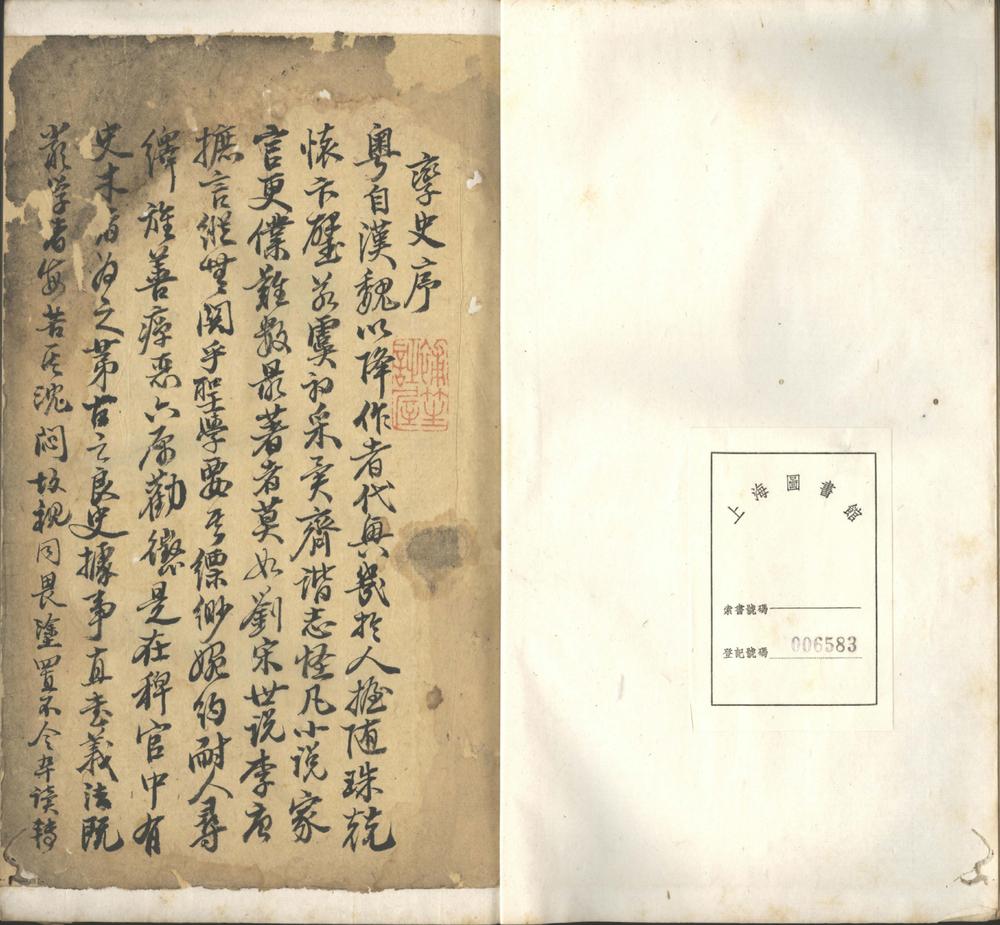 上海圖書館
索書號碼
登記號碼 006583
孽史序
粵自漢魏以降作者代興幾於人握随珠競
懷卞璧若虞初采異齊諧志怪凡小说家
言更僕難数最著者莫如劉宋世说李唐
摭言縱無関乎聖學要其縹緲婉約耐人尋
繹旌善瘅恶亦原勸懲是在稗官中有
史未
之第古之良史據事直書義法既
嚴学者每苦其沈悶故視同畏塗置不令卒读轉